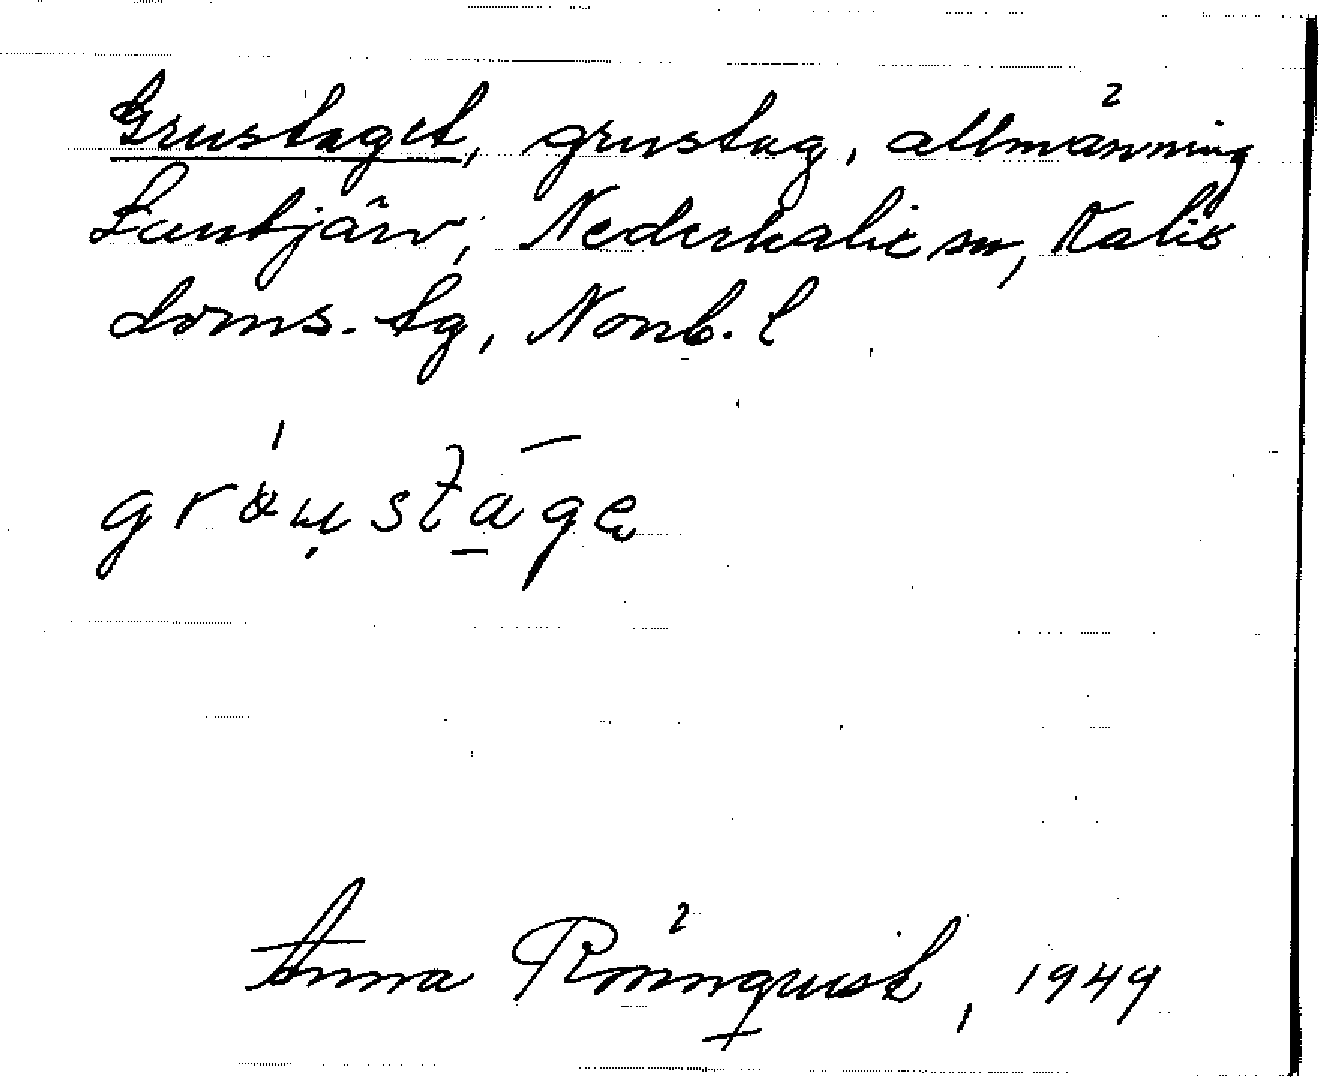 Grustaget, grustag, allmänning
Lantjärv, Nederkalix sn, Kalix
doms. tg, Norrb. l
Anna Rönnquist, 1949